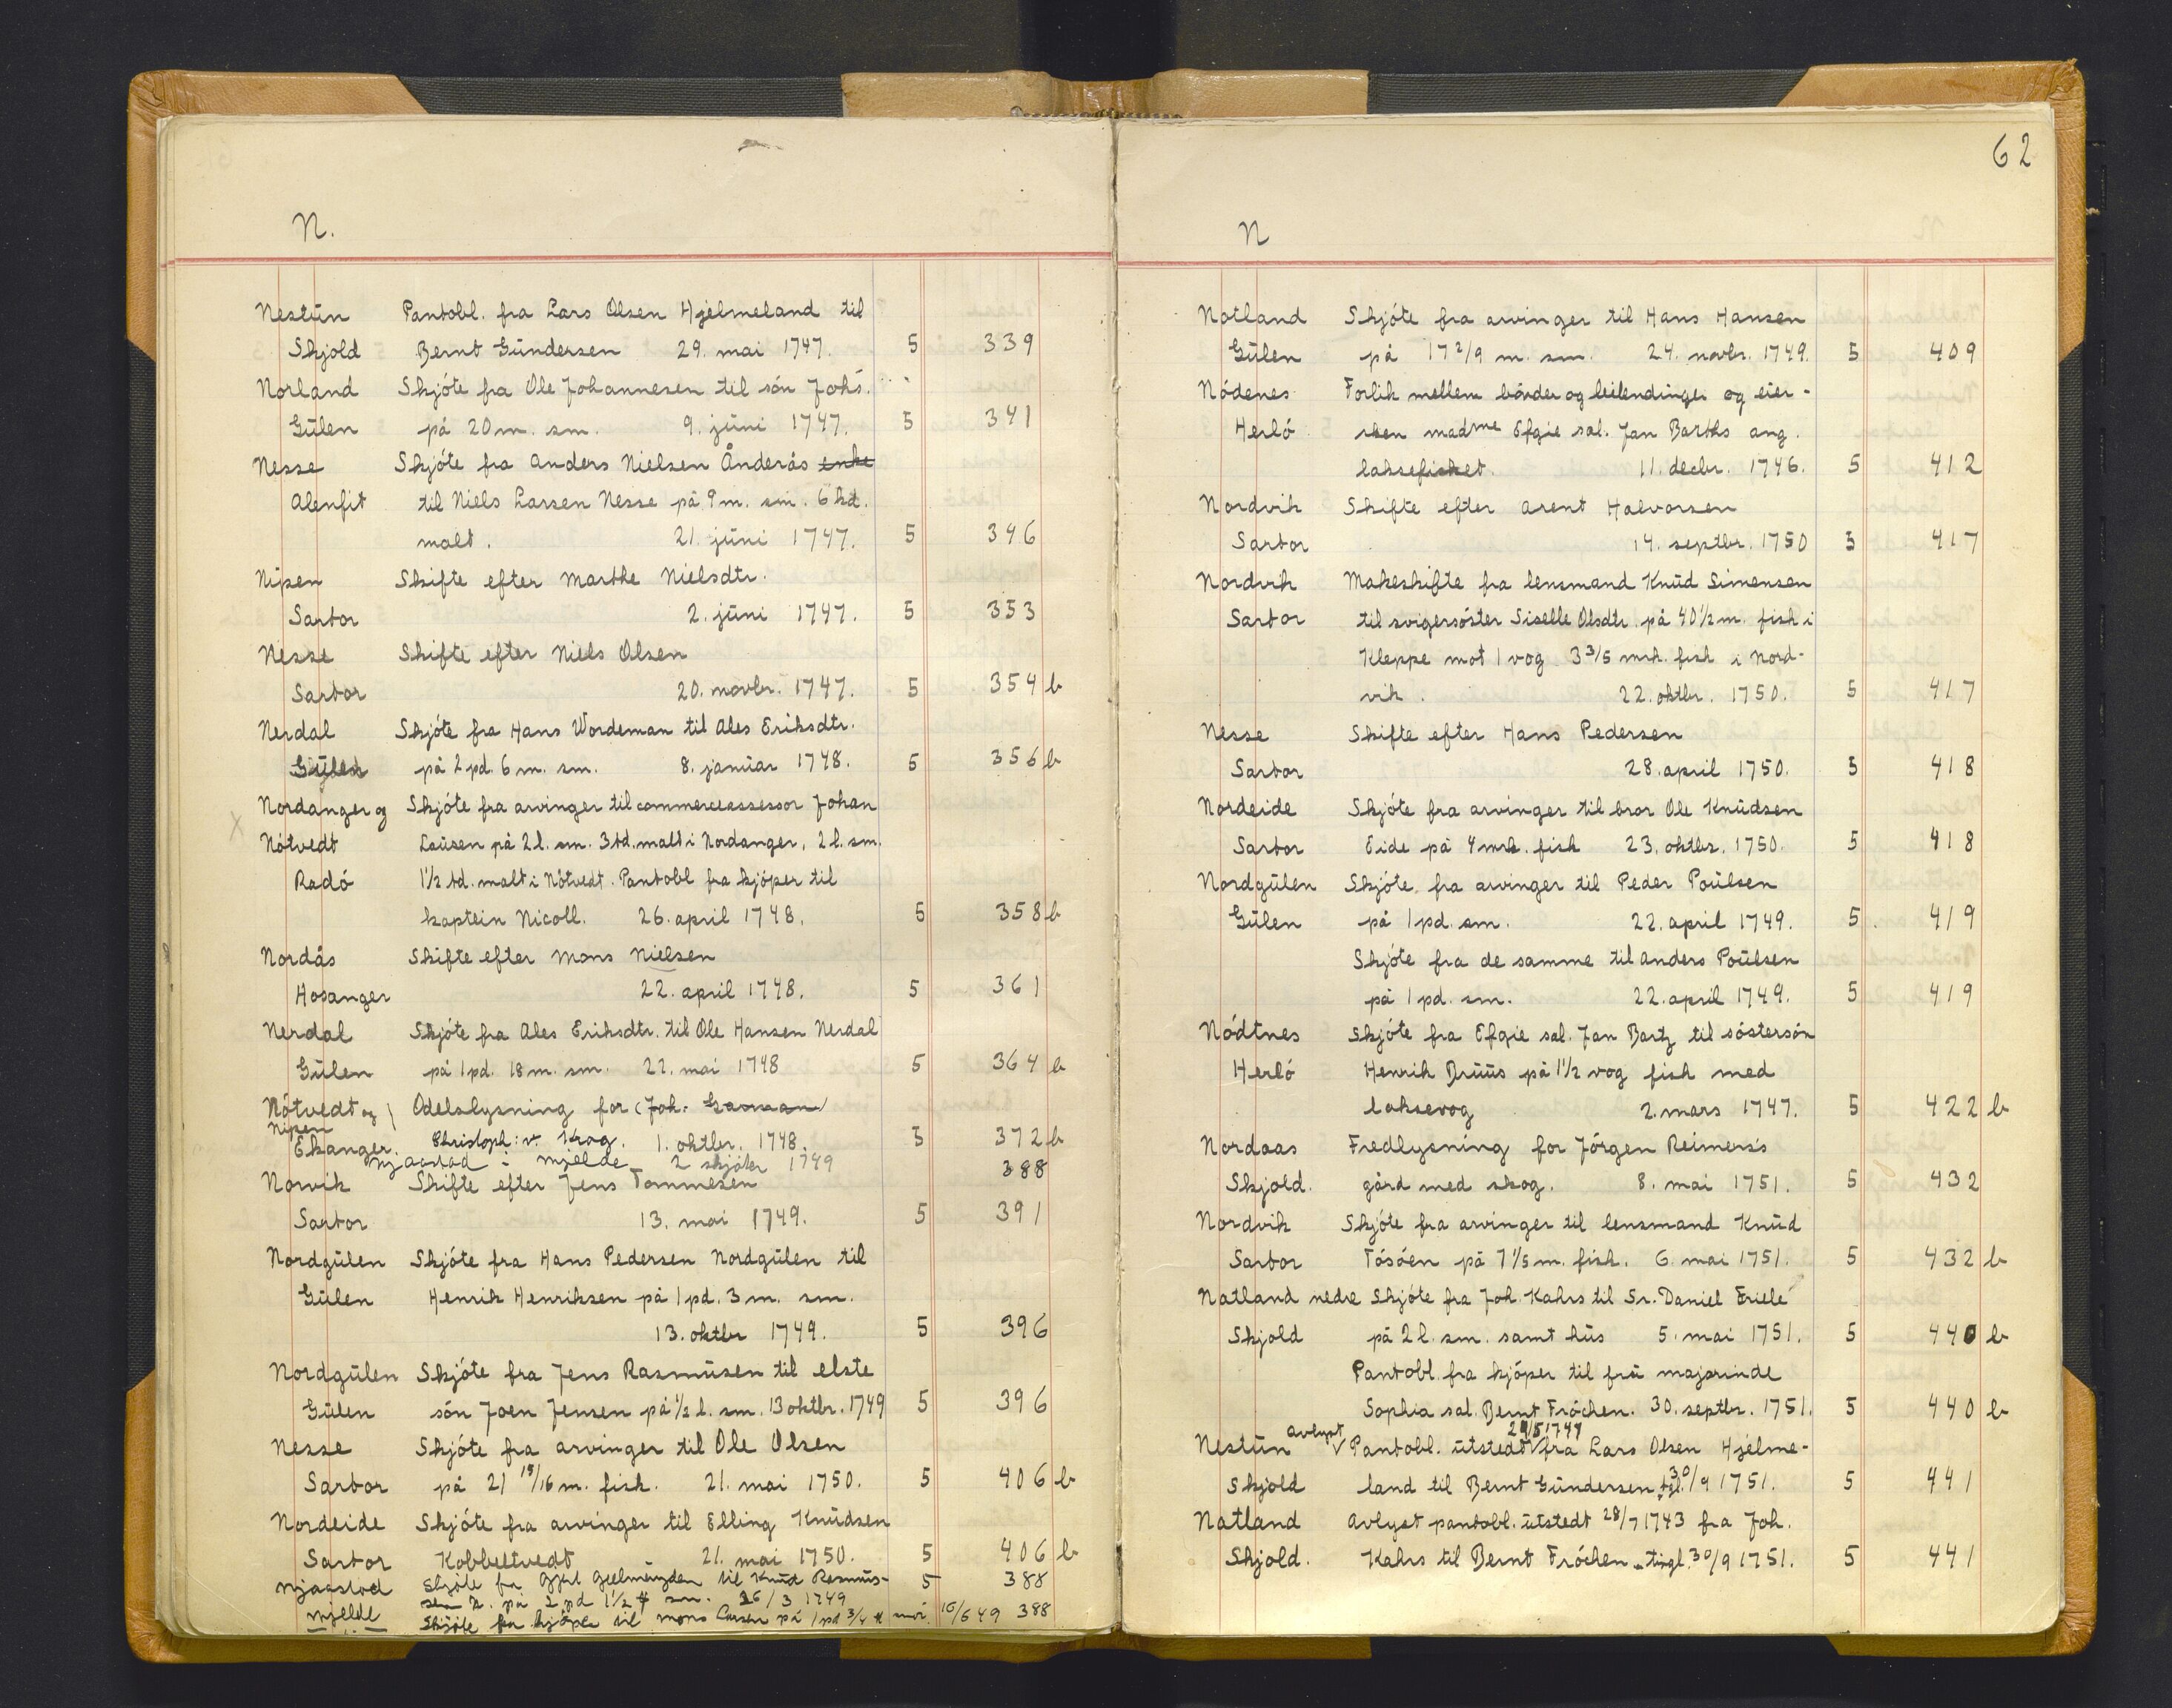 N.
Nestün Pantobl. fra Lars Olsen Hjelmeland til
Skjold Bernt Gündersen 29. mai 1747. 5 339
Norland Skjóte fra Ole Johannesen til són Johs.
Gülen på 20 m. sm. 9. jüni 1747. 5 341
Nesse Skjóte fra Anders Nielsen Ånderås enke
Alenfit til Niels Larsen Nesse på 9 m. sm. 6 kd.
malt. 21. jüni 1747. 5 346
Nipen Skifte efter Marthe Nielsdtr.
Sartor 2. jüni 1747. 5 353
Nesse Skifte efter Niels Olsen
Sartor 20. novbr. 1747. 5 354 b
Nerdal Skjóte fra Hans Wordeman til Ales Eriksdtr.
Gülen på 2 pd. 6 m. sm. 8. janüar 1748. 5 356 b
Nordanger og Skjóte fra arvinger til commerceassessor Johan
X Nótvedt Laüsen på 2 l. sm. 3 td. malt i Nordanger, 2 l. sm.
Radó 1½ td. malt i Nótvedt. Pantobl fra kjóper til
kaptein Nicoll. 26. april 1748. 5 358 b
Nordås Skifte efter Mons Nielsen
Hosanger 22. april 1748. 5 361
Nerdal Skjóte fra Ales Eriksdtr. til Ole Hansen Nerdal
Gülen på 1 pd. 18 m. sm. 22. mai 1748 5 364 b
Nótvedt og Odelslysning for (Joh. Garman)
Nipen
Ekanger. Christoph: v. Krog. 1. oktbr. 1748. 5 372 b
Njaastad i Mjelde 2 skjóter 1749 388
Norvik Skifte efter Jens Tommesen
Sartor 13. mai 1749. 5 391
Nordgülen Skjóte fra Hans Pedersen Nordgülen til
Gülen Henrik Henriksen på 1 pd. 3 m. sm.
13. oktbr 1749. 5 396
Nordgülen Skjóte fra Jens Rasmüsen til elste
Gülen són Joen Jensen på ½ l. sm. 13 oktbr. 1749 5 396
Nesse Skjóte fra arvinger til Ole Olsen
Sartor på 21 15/16 m. fisk. 21. mai 1750. 5 406 b
Nordeide Skjóte fra arvinger til Elling Knüdsen
Sartor Kobbeltvedt 21. mai 1750. 5 406 b
Njaastad Skjóte fra Gjert Geelmüyden til Knüd Rasmüs- 5 388
sen N. på 2 pd 1½ sm. 26/3 1749
Mjelde Skjóte fra kjóper til Mons Larsen på 1 pd 3/4 smór. 16/6 49 388
62
N
Natland Skjóte fra arvinger til Hans Hansen
Gülen på 17 2/9 m. sm. 24. novbr. 1749. 5 409
Nódenes Forlik mellem bónder og leilendinger og eier-
Herló sken madme Efgie sal. Jan Barths ang.
laksefisket. 11. decbr. 1746. 5 412
Nordvik Skifte efter Arent Halvorsen
Sartor 14. septbr. 1750 5 417
Nordvik Makeskifte fra lensmand Knüd Simensen
Sartor til svigersóster Siselle Olsdtr. på 40½ m. fisk i
Kleppe mot 1 vog 3 3/5 mrk. fisk i Nord-
vik. 22. oktbr. 1750. 5 417
Nesse Skifte efter Hans Pedersen
Sartor 28. april 1750. 5 418
Nordeide Skjóte fra arvinger til bror Ole Knüdsen
Sartor Eide på 4 mrk. fisk 23. oktbr. 1750. 5 418
Nordgülen Skjóte fra arvinger til Peder Poülsen
Gülen på 1 pd. sm. 22. april 1749. 5 419
Skjóte fra de samme til Anders Poülsen
på 1 pd. sm. 22. april 1749. 5 419
Nódtnes Skjóte fra Efgie sal. Jan Bartz til sóstersón
Herló Henrik Brüüs på 1½ vog fisk med
laksevog 2. mars 1747. 5 422 b
Nordaas Fredlysning for Jórgen Reimers's
Skjold. gård med skog. 8. mai 1751. 5 432
Nordvik Skjóte fra arvinger til lensmand Knüd
Sartor Tósóen på 7 1/5 m. fisk. 6. mai 1751. 5 432 b
Natland nedre Skjóte fra Joh. Kahrs til Sr. Daniel Friele
Skjold på 2 l. sm. samt hüs 5. mai 1751. 5 440 b
Pantobl. fra kjóper til frü majorinde
Sophia sal. Bernt Fróchen. 30. septbr. 1751. 5 440 b
avlyst 29/5 1747
Nestün Pantobl. ütstedt fra Lars Olsen Hjelme-
Skjold land til Bernt Gündersen tgl. 30/9 1751. 5 441
Natland Avlyst pantobl. ütstedt 28/7 1743 fra Joh.
Skjold. Kahrs til Bernt Fróchen tingl. 30/9 1751. 5 441